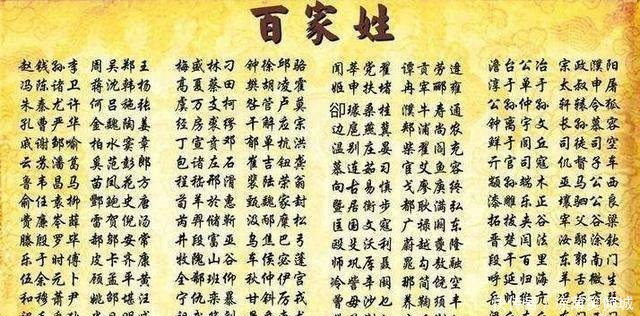 百家姓
赵钱孙李 周吴郑王 梅盛林刁 钟徐邱骆 闻莘党翟 谭贡劳逄 澹台公冶 宗政濮阳
冯陈褚卫 蒋沈韩杨 高夏蔡田 樊胡凌霍 姬申扶堵 冉宰郦雍 淳于单于 太叔申屠
朱秦尤许 何吕施张 虞万支柯 昝管卢莫 卻璩桑桂 濮牛寿通 公孙仲孙 轩辕令狐
孔曹严华 金魏陶姜 经房裘缪 干解应宗 边扈燕冀 郏浦尚农 钟离宇文 长孙慕容
戚谢邹喻 柏水窦章 丁宣贲邓 郁单杭洪 温别庄晏 柴瞿阎充 鲜于闾丘 司徒司空
云苏潘葛 奚范彭郎 包诸左石 崔吉钮龚 慕连茹习 宦艾鱼容 亓官司寇 仉督子车
鲁韦昌马 苗凤花方 程嵇邢滑 裴陆荣翁 向古易慎 戈廖庾终 颛孙端木 巫马公西
俞任袁柳 酆鲍史唐 荀羊於惠 甄曲家封 暨居衡步 都耿满弘 漆雕乐正 壤驷公良
费廉岑薛 雷贺倪汤 芮羿储靳 汲邴糜松 匡国文寇 广禄阙东 拓跋夹谷 宰父谷梁
滕殷罗毕 郝邬安常 井段富巫 乌焦巴弓 殴殳沃利 蔚越夔隆 晋楚闫法 汝鄢涂钦
乐于时傅 皮卞齐康 牧隗山谷 车侯宓蓬 师巩厍聂 晁勾敖融 段干百里 东郭南门
伍余元卜 顾孟平黄 全郗班仰 秋仲伊宫 冷訾辛阚 那简饶空 呼延归海 羊舌微生
和穆萧尹 姚邵湛汪 宁仇栾暴 甘钭厉戎 曾毋沙乜 养鞠须丰